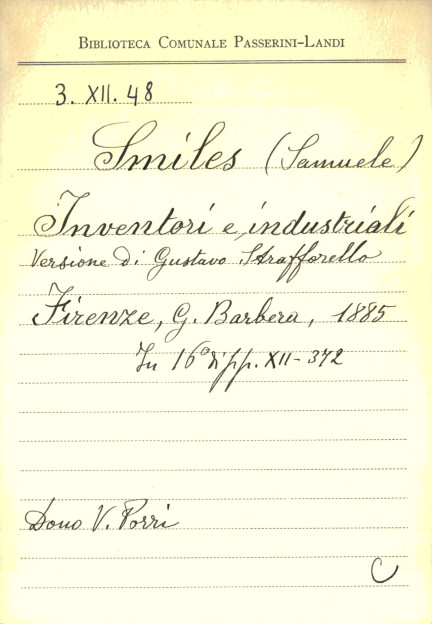 BIBLIOTECA COMUNALE PASSERINI-LANDI
3. XII. 48
Smiles (Samuele)
Inventori e industriali
Versione di Gustavo Strafforello
Firenze, G. Barbera, 1885
In 16° di pp. XII-372
Dono V. Porri
C